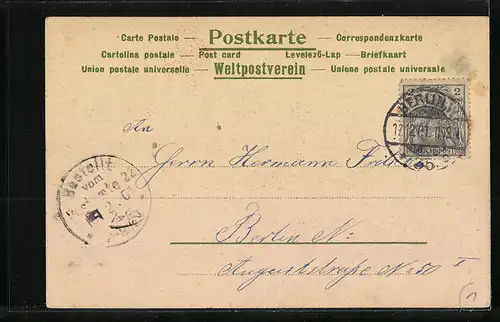 Carte Postale — Postkarte — Correspondenzkarte
Cartolina postale — Post card Levelező-Lap — Briefkaart
Union postale universelle — Weltpostverein — Unione postale universale
2 2
BERLIN
An
Herrn Hermann
Bestellt
vom
Berlin N.
Auguststraße No 50 I